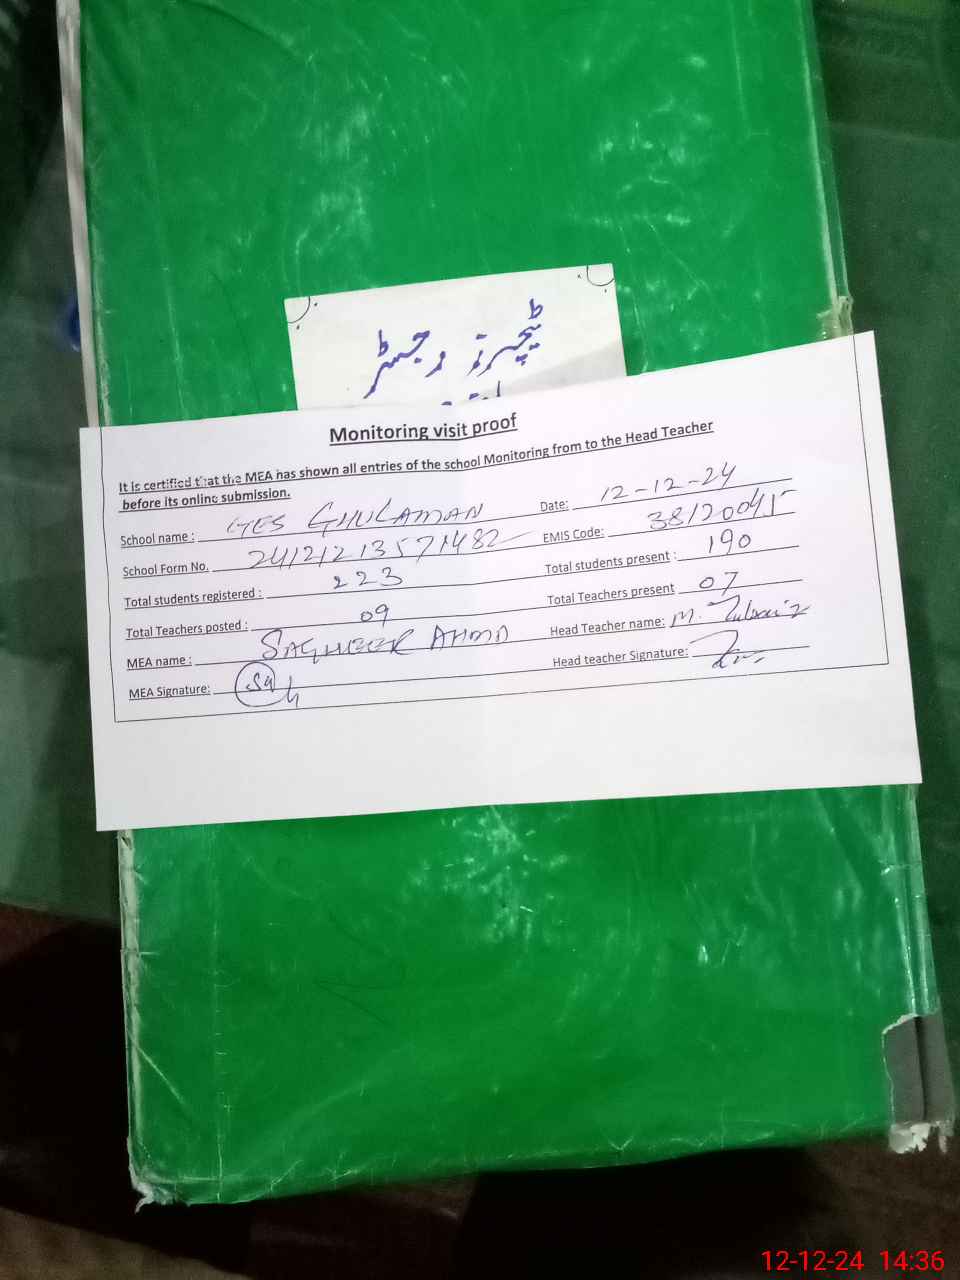 ٹیچرز رجسٹر
Monitoring visit proof
It is certified that the MEA has shown all entries of the school Monitoring from to the Head Teacher
before its online submission.
School name : GES GHULAMAN Date: 12-12-24
School Form No. 24121213571482 EMIS Code: 38120045
Total students registered : 223 Total students present : 190
Total Teachers posted : 09 Total Teachers present 07
MEA name : SAGHEER AHMD Head Teacher name: M. Zubair
MEA Signature: Head teacher Signature:
12-12-24 14:36